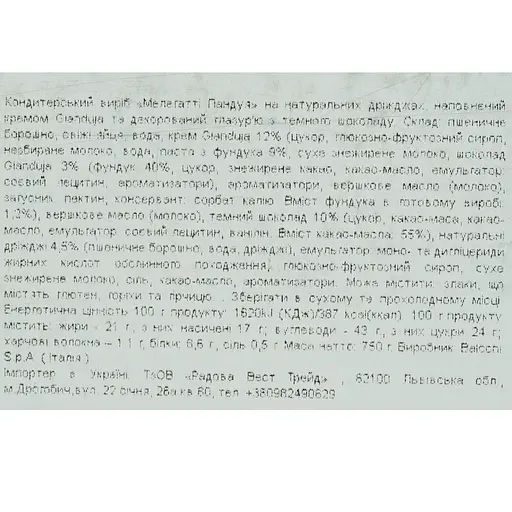 Кондитерський виріб «Мелегатті Пандуя» на натуральних дріжджах, наповнений
кремом Gianduja та декорований глазур'ю з темного шоколаду. Склад: пшеничне
борошно, свіжі яйця, вода, крем Gianduja 12% (цукор, глюкозно-фруктозний сироп,
незбиране молоко, вода, паста з фундука 9%, сухе знежирене молоко, шоколад
Gianduja 3% (фундук 40%, цукор, знежирене какао, какао-масло, емульгатор:
соєвий лецитин, ароматизатори), ароматизатори, вершкове масло (молоко),
загусник: пектин, консервант: сорбат калію. Вміст фундука в готовому виробі:
1,3%), вершкове масло (молоко), темний шоколад 10% (цукор, какао-маса, какао-
масло, емульгатор: соєвий лецитин, ванілін. Вміст какао-масла: 55%), натуральні
дріжджі 4,5% (пшеничне борошно, вода, дріжджі), емульгатор: моно- та дигліцериди
жирних кислот рослинного походження, глюкозно-фруктозний сироп, сухе
знежирене молоко, сіль, какао-масло, ароматизатори. Може містити: злаки, що
містять глютен, горіхи та гірчицю. . Зберігати в сухому та прохолодному місці.
Енергетична цінність 100 г продукту: 1620kJ (КДж)/387 kcal(ккал). 100 г продукту
містить: жири - 21 г, з них насичені 17 г; вуглеводи - 43 г, з них цукри 24 г;
харчові волокна – 1,1 г, білки: 6,6 г, сіль 0,5 г. Маса нетто: 750 г. Виробник
S.p.A. ( Італія )
Імпортер в Україні: ТзОВ «Радова Вест Трейд» , 82100 Львівська обл.,
м.Дрогобич,вул. 22 січня, 26а кв 60, тел. +380982490629